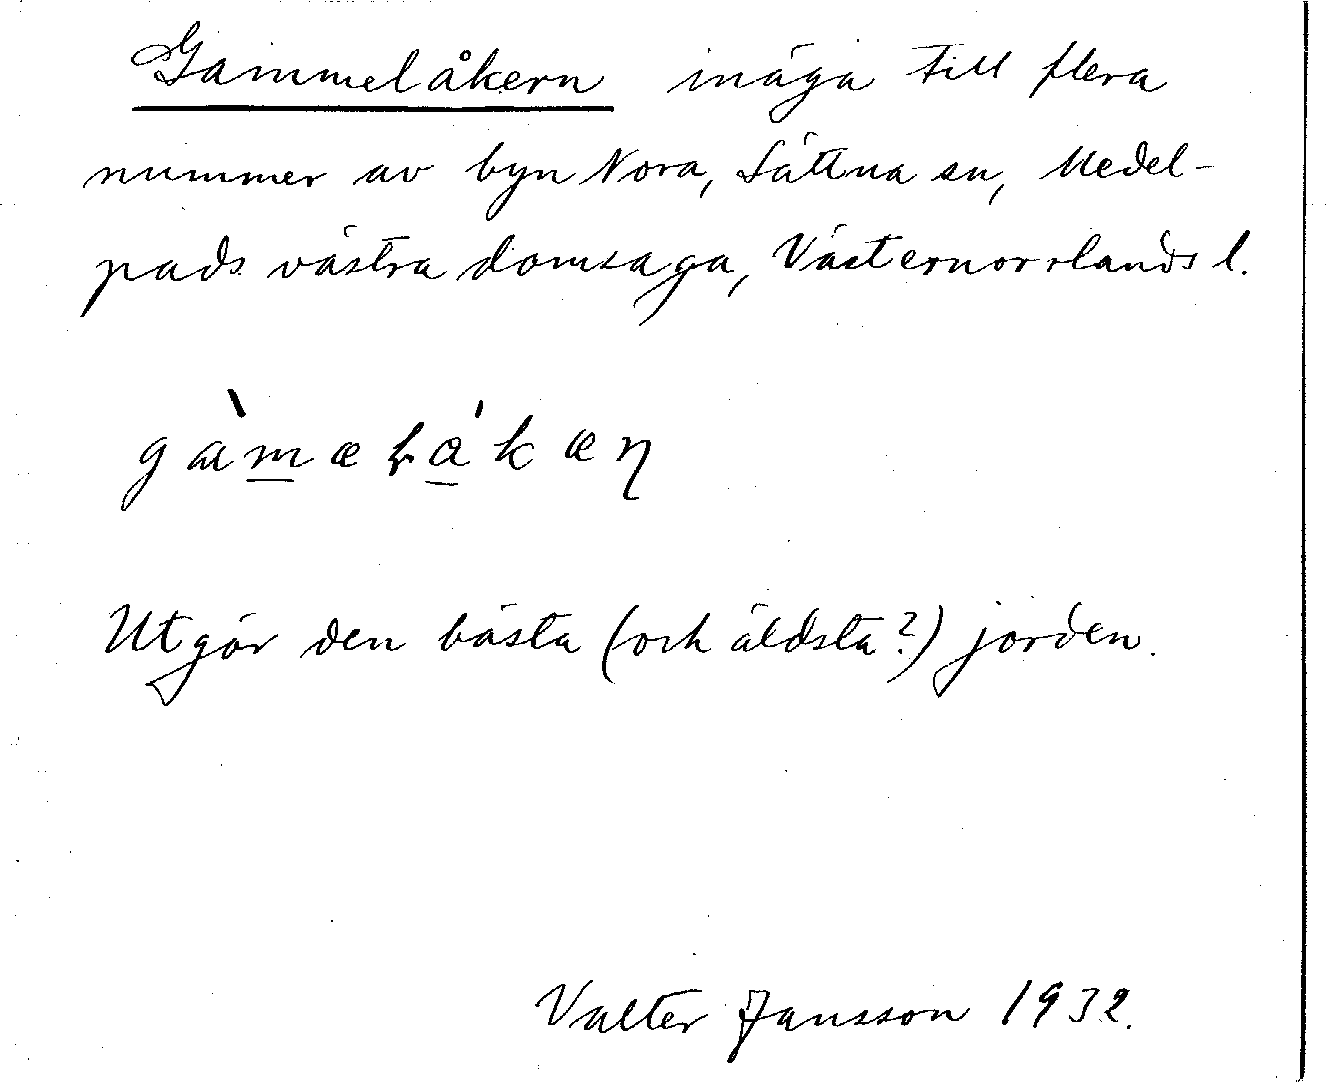 Gammelåkern inäga till flera
nummer av byn Nora, Sättna sn, Medel-
pads västra domsaga, Västernorrlands l.
Utgör den bästa (och äldsta?) jorden.
Valter Jansson 1932.